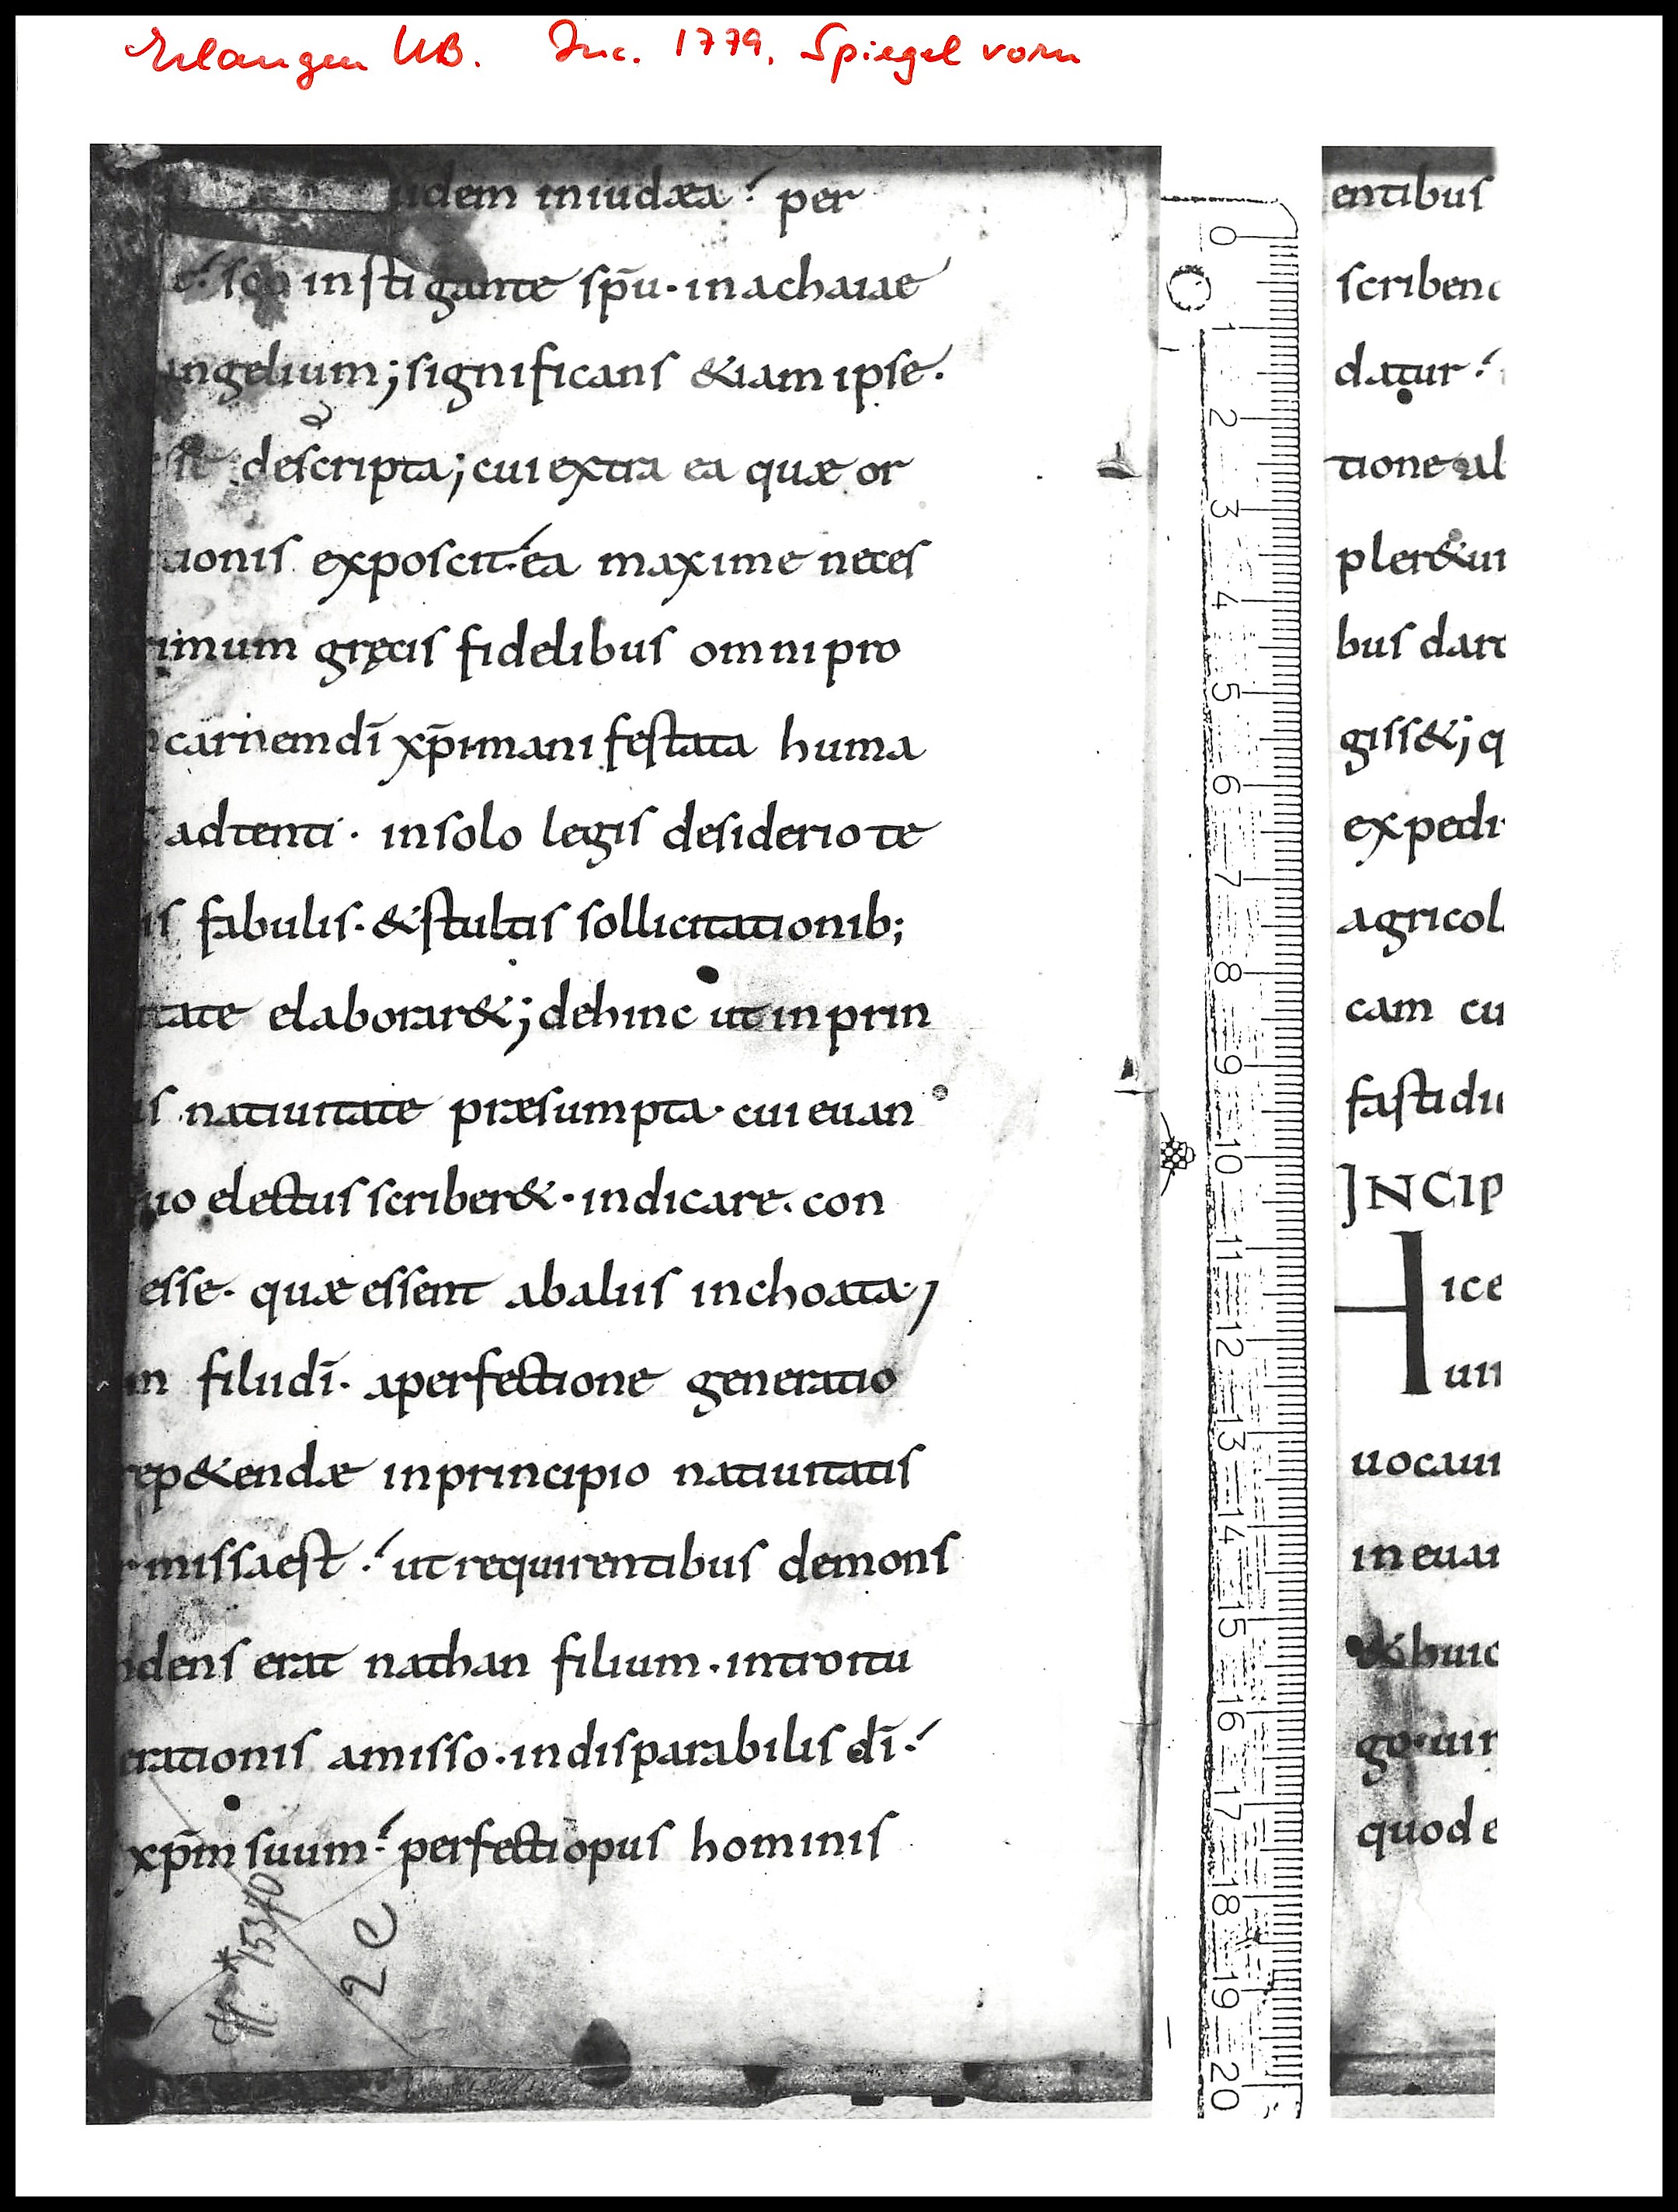 Erlangen UB. Inc. 1779, Spiegel vorn
idem iniudæa? per
sc̄o instigante sp̄u · inachaiae
angelium; significans &iam ipse.
descripta; cui extra ea quæ or
tionis exposcit. ea maxime neces
rimum gręcis fidelibus omni pro
carnem dī xp̄i · manifestata huma
adtenti · insolo legis desiderio te
is fabulis · & stultis sollicitationib;
tate elaborar&; dehinc ut inprin
is natiuitate præsumpta · cui euan
uo electus scriber& · indicare. con
esse · quæ essent abaliis inchoata;
m filii dī · aperfectione generatio
rep&endæ inprincipio natiuitatis
missaest? ut requirentibus demons
dens erat nathan filium · introitu
erationis amisso · indisparabilis dī?
xp̄m suum? perfecti opus hominis
*15370
2 C
0 1 2 3 4 5 6 7 8 9 10 11 12 13 14 15 16 17 18 19 20
entibus
scriben
datur?
tione al
pler& in
bus dare
giss&; q
expedi
agricol
cam cu
fastidi
INCIP
ice
uir
uocaui
in euan
& huic
go · uir
quod e